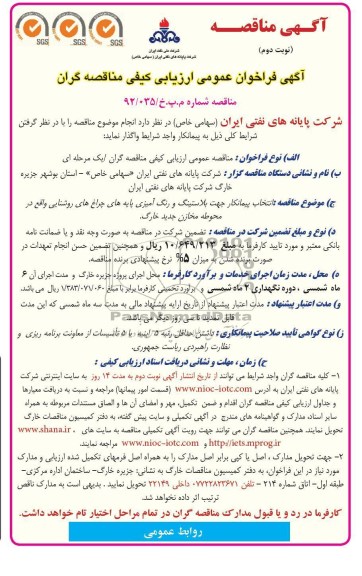 آگهی مناقصه
(نوبت دوم)
شرکت ملی نفت ایران
شرکت پایانه های نفتی ایران (سهامی خاص)
SGS SGS SGS
آگهی فراخوان عمومی ارزیابی کیفی مناقصه گران
مناقصه شماره م.پ.خ/۹۲/۰۳۵
شرکت پایانه های نفتی ایران (سهامی خاص) در نظر دارد انجام موضوع مناقصه را با در نظر گرفتن
شرایط کلی ذیل به پیمانکار واجد شرایط واگذار نماید:
الف) نوع فراخوان: مناقصه عمومی ارزیابی کیفی مناقصه گران /یک مرحله ای
ب) نام و نشانی دستگاه مناقصه گزار: شرکت پایانه های نفتی ایران «سهامی خاص» - استان بوشهر جزیره
خارگ شرکت پایانه های نفتی ایران
ج) موضوع مناقصه: انتخاب پیمانکار جهت بلاستینگ و رنگ آمیزی پایه های چراغ های روشنایی واقع در
محوطه مخازن جدید خارگ.
د) نوع و مبلغ تضمین شرکت در مناقصه: تضمین شرکت در مناقصه به صورت وجه نقد و یا ضمانت نامه
بانکی معتبر و مورد تایید کارفرما به مبلغ ۱۰/۶۴۹/۲۱۳ ریال و همچنین تضمین حسن انجام تعهدات در
صورت برنده شدن به میزان ۵% نرخ پیشنهادی برنده مناقصه.
ه) محل، مدت زمان اجرای خدمات و برآورد کارفرما: محل اجرای پروژه جزیره خارگ و مدت اجرای آن ۶
ماه شمسی، دوره نگهداری ۲ ماه شمسی و برآورد تخمینی کارفرما برابر با مبلغ ریال می باشد.
و) مدت اعتبار پیشنهاد: مدت اعتبار پیشنهاد از تاریخ ارایه پیشنهاد مالی به مدت سه ماه شمسی که این مدت
قابل تمدید تا سی روز دیگر می باشد.
ز) نوع گواهی تأیید صلاحیت پیمانکاری: داشتن حداقل رتبه ۵ ابنیه، یا ۵ تأسیسات از معاونت برنامه ریزی و
نظارت راهبردی ریاست جمهوری.
ح) زمان، مهلت و نشانی دریافت اسناد ارزیابی کیفی:
۱- کلیه مناقصه گران واجد شرایط می توانند از تاریخ انتشار آگهی نوبت دوم به مدت ۱۴ روز به سایت اینترنتی شرکت
پایانه های نفتی ایران به آدرس www.nioc-iotc.com (قسمت امور پیمانها) مراجعه و نسبت به دریافت معیارها
و جداول ارزیابی کیفی مناقصه گران اقدام و ضمن تکمیل، مهر و امضای آن ها و الصاق مستندات مربوطه به همراه
سایر اسناد مدارک و گواهینامه های مندرج در آگهی تکمیلی و سایت پیش گفته، به دفتر کمیسیون مناقصات خارگ
تحویل نمایند. همچنین مناقصه گران می توانند جهت رویت آگهی تکمیلی مناقصه به سایت های www.shana.ir،
http://iets.mporg.ir و www.nioc-iotc.com مراجعه نمایند.
۲- جهت تحویل مدارک، اصل یا کپی برابر اصل مدارک را به همراه اصل فرمهای تکمیل شده ارزیابی و مدارک
مورد نیاز در این فراخوان، به دفتر کمیسیون مناقصات خارگ به نشانی: جزیره خارگ- ساختمان اداره مرکزی-
طبقه اول- اتاق شماره ۲۱۴ - تلفن ۰۷۷۲۲۸۲۳۶۷۱ داخلی ۲۲۱۴۹ تحویل نمایید. بدیهی است به مدارک ناقص
ترتیب اثر داده نخواهد شد.
کارفرما در رد و یا قبول مدارک مناقصه گران در تمام مراحل اختیار تام خواهد داشت.
روابط عمومی